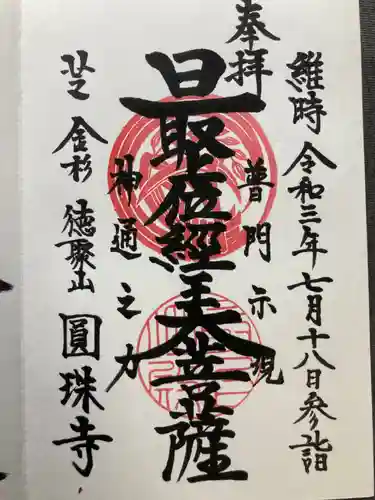 奉拝
維時令和三年七月十八日参詣
普門示現
最上位經王大菩薩
神通之力
芝金杉
徳聚山
圓珠寺